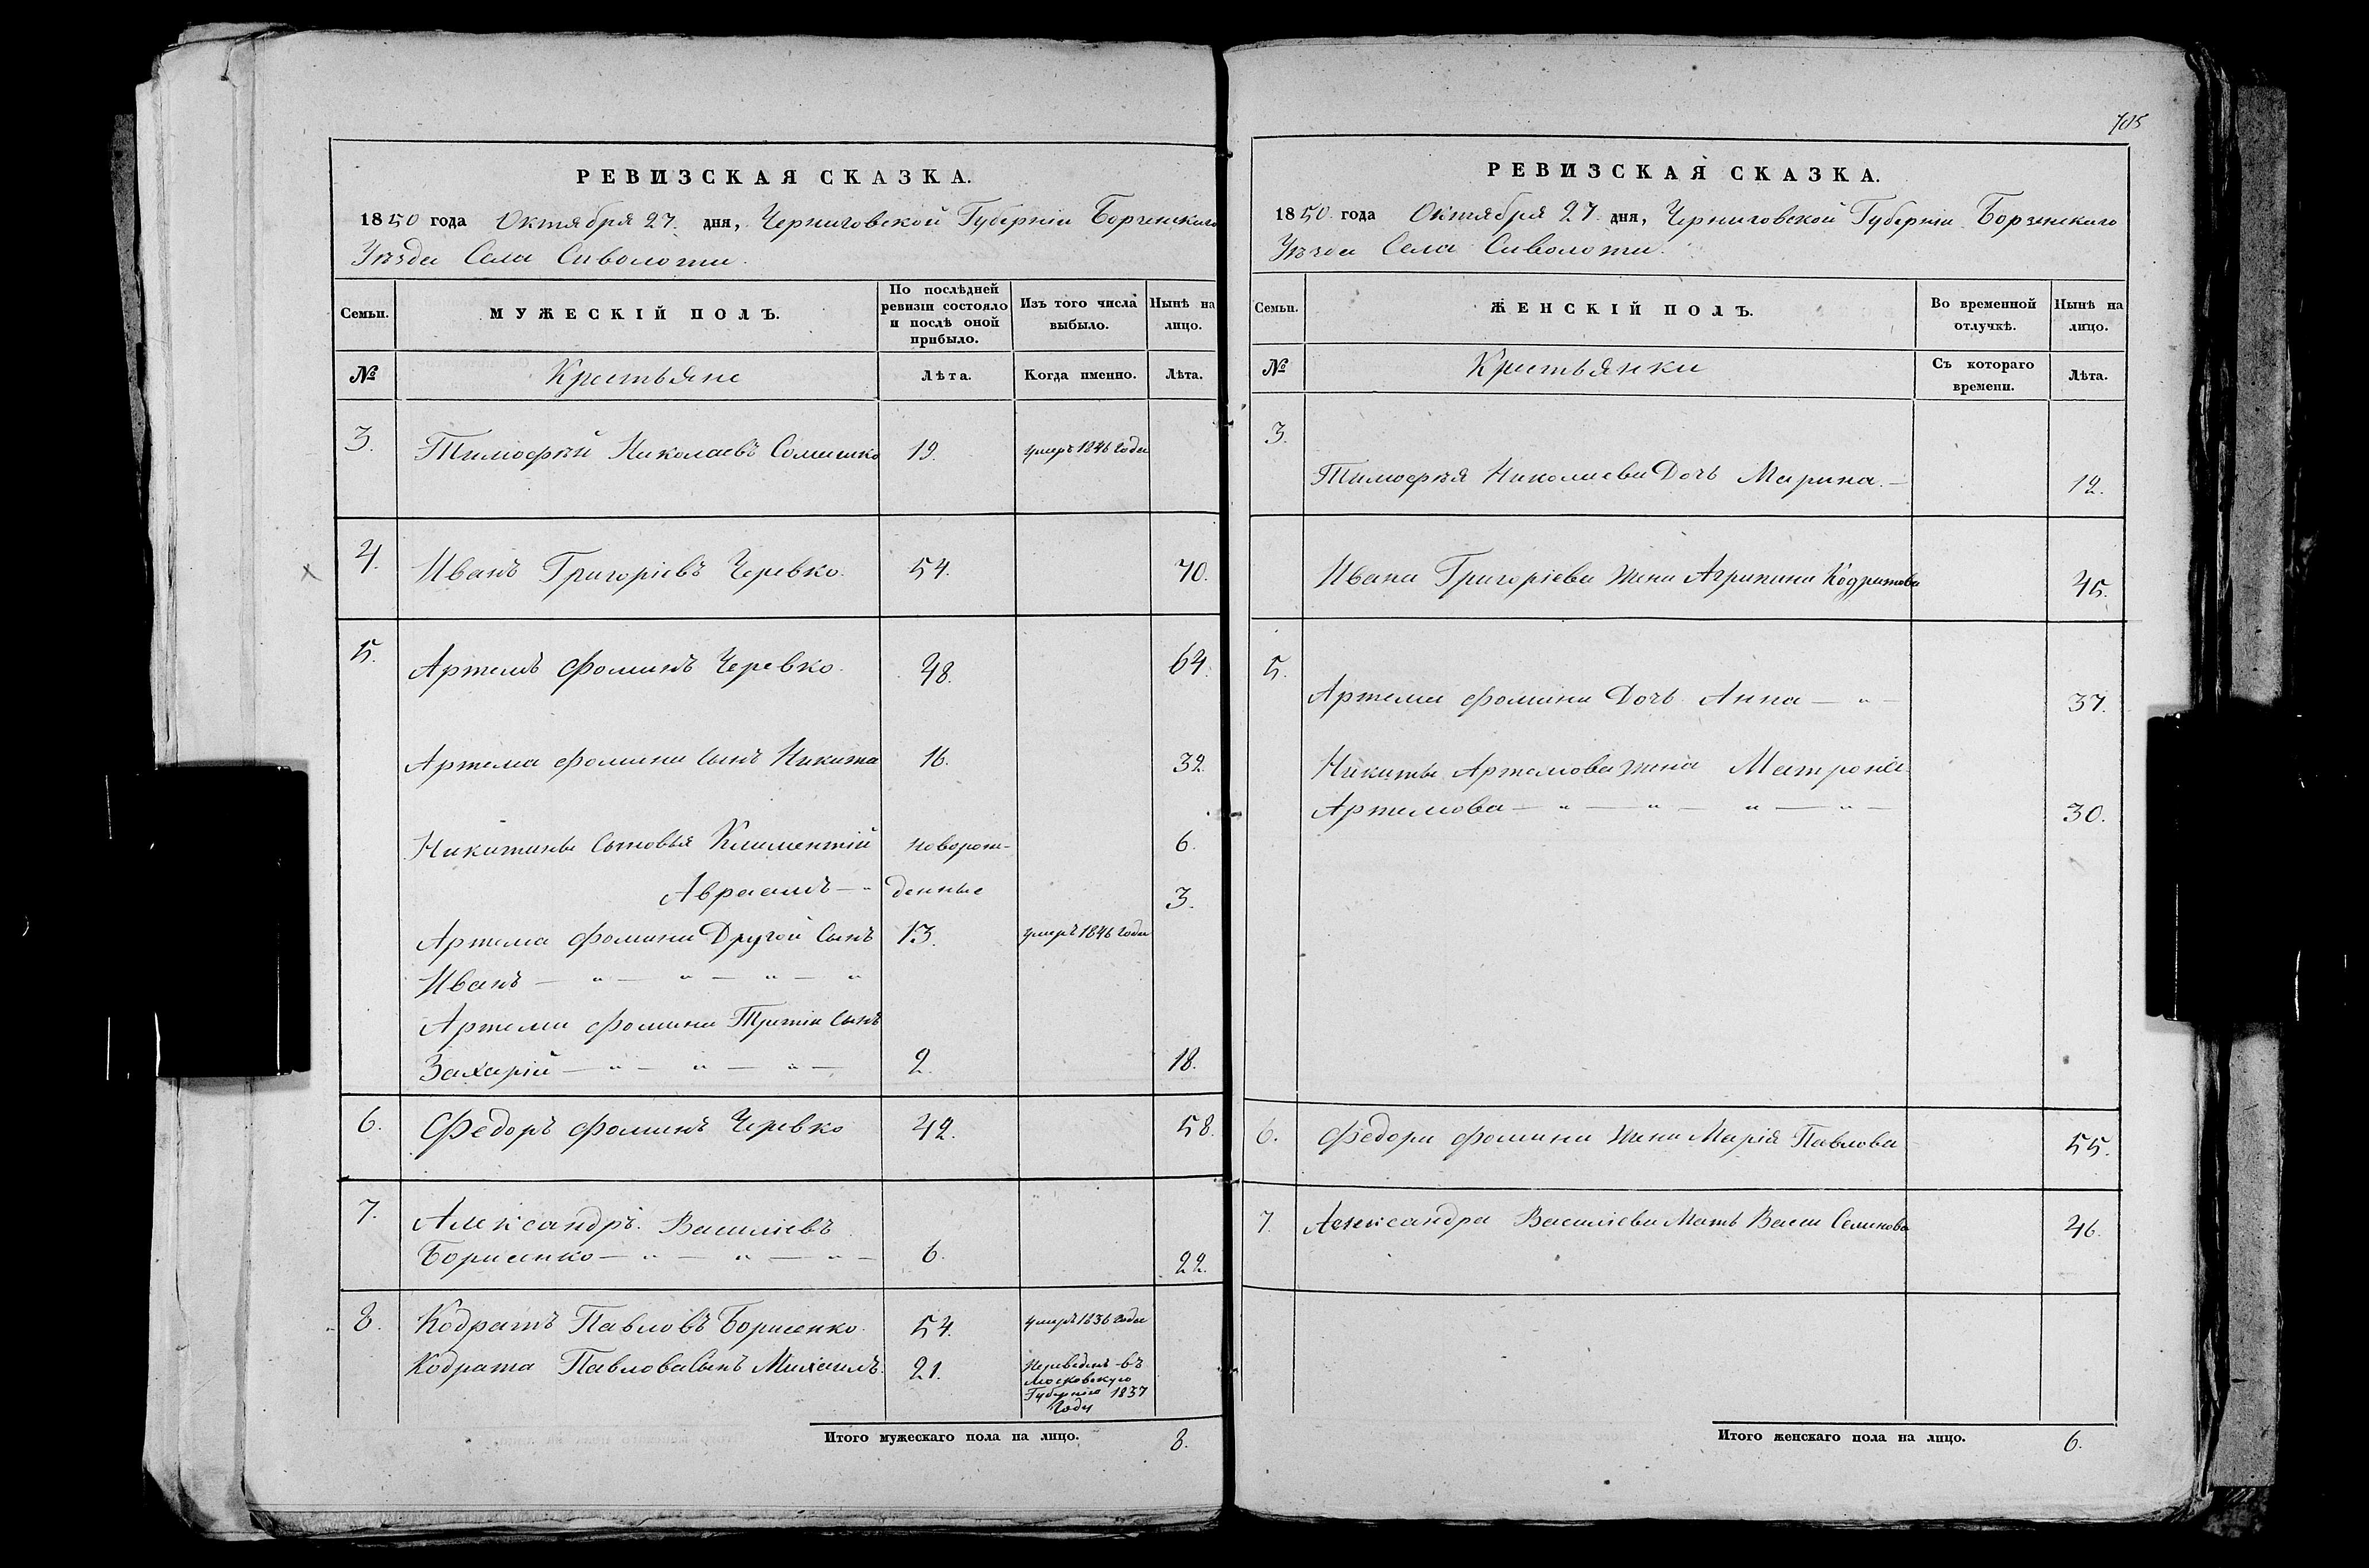 РЕВИЗСКАЯ СКАЗКА.
1850 года Октября 27. дня, Черниговской Губерніи Борзенскаго
Уѣзда Села Сиволожи.
Семьи.
МУЖЕСКІЙ ПОЛЪ.
По послѣдней
ревизіи состояло
и послѣ оной
прибыло.
Изъ того числа
выбыло.
Нынѣ на
лицо.
№ Крестьяне Лѣта. Когда именно. Лѣта.
3. Тимофѣй Николаевъ 19. умеръ 1846 года
4. Иванъ Григоріевъ Черевко. 54. 70.
5. Артемъ Фоминъ Черевко. 48. 64.
Артема Фомина сынъ Никита 16. 32.
Никитины сыновья Климентій новорож- 6.
Авраамъ — " денные 3.
Артема Фомина Другой Сынъ 13. умеръ 1846 года
Иванъ — " — " — " — "
Артема Фомина Третій Сынъ
Захарій — " — " — " — 2. 18.
6. Федоръ Фоминъ Черевко 42. 58.
7. Александръ Василіевъ
Борисенко — " — " — " — 6. 22.
8. Кодратъ Павловъ Борисенко. 54. умеръ 1836 года
Кодрата Павлова Сынъ Михаилъ 21. Переведенъ въ
Московскую
Губернію 1837
Году
Итого мужескаго пола на лицо. 8.
705
РЕВИЗСКАЯ СКАЗКА.
1850 года Октября 27. дня, Черниговской Губерніи Борзенскаго
Уѣзда Села Сиволожи.
Семьи.
ЖЕНСКІЙ ПОЛЪ.
Во временной
отлучкѣ.
Нынѣ на
лицо.
№ Крестьянки Съ котораго
времени. Лѣта.
3.
Тимофѣя Николаева Дочь Марина. — 12.
Ивана Григоріева жена Агрипина Кодратова 45.
5.
Артема Фомина Дочь Анна — " — 37.
Никиты Артемова жена Матрона
Артемова — " — " — " — " — 30.
6. Федора Фомина жена Марія Павлова 55.
7. Александра Василіева Мать Васса Семенова 46.
Итого женскаго пола на лицо. 6.